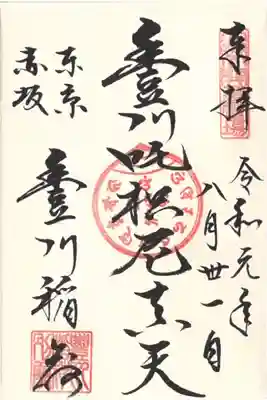 奉拝
令和元年
八月卅一日
豊川吒枳尼真天
東京
赤坂
豊川稲荷